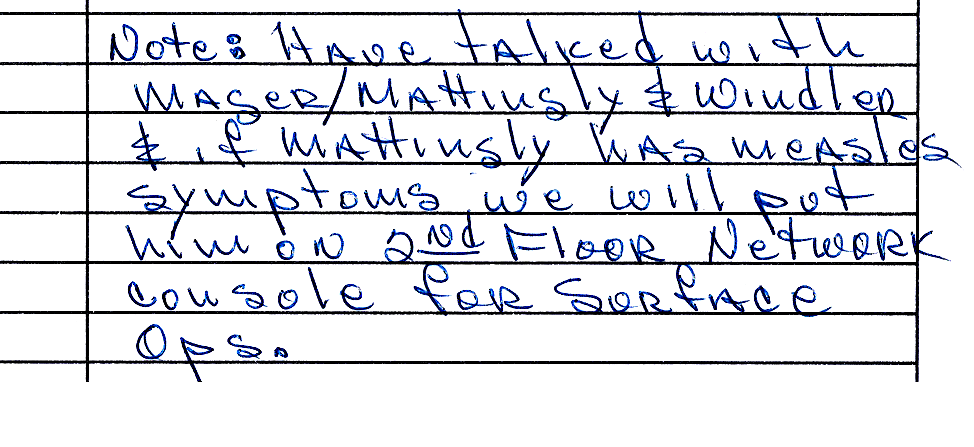 Note: Have talked with
Mager/Mattingly & Windler
& if Mattingly has measles
symptoms we will put
him on 2nd Floor Network
console for Surface
Ops.